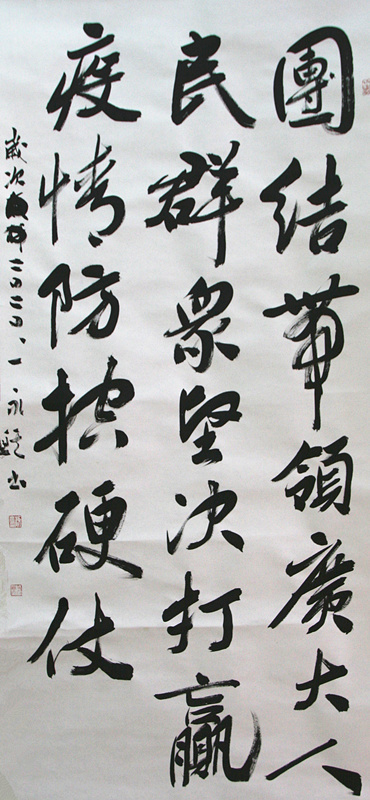 團結帶領廣大人
民群衆堅决打贏
疫情防控硬仗
歲次二〇二〇、一永書